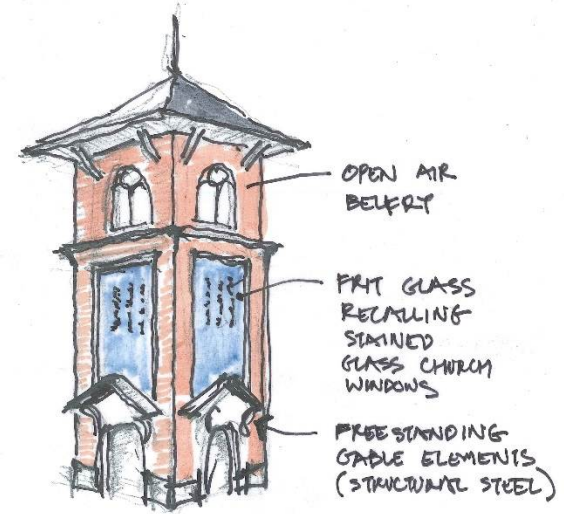 OPEN AIR
BELFRY
FRIT GLASS
RECALLING
STAINED
GLASS CHURCH
WINDOWS
FREESTANDING
GABLE ELEMENTS
(STRUCTURAL STEEL)